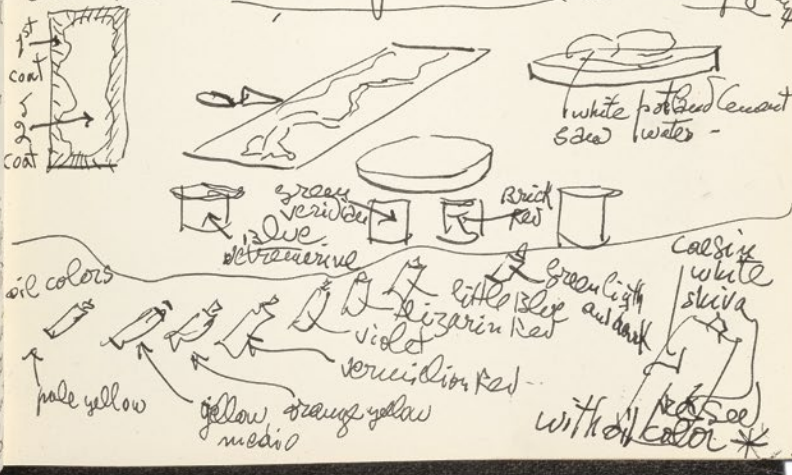 1st
coat
2
coat
white portland Cement
sand water -
green
veridian
Blue
ultramerine
Brick
Red
oil colors
pale yellow
yellow
medio
orange yellow
vermilion Red
violet
alizarin Red
little Blue
green ligth
and dark
casein
white
shiva
with oil color *